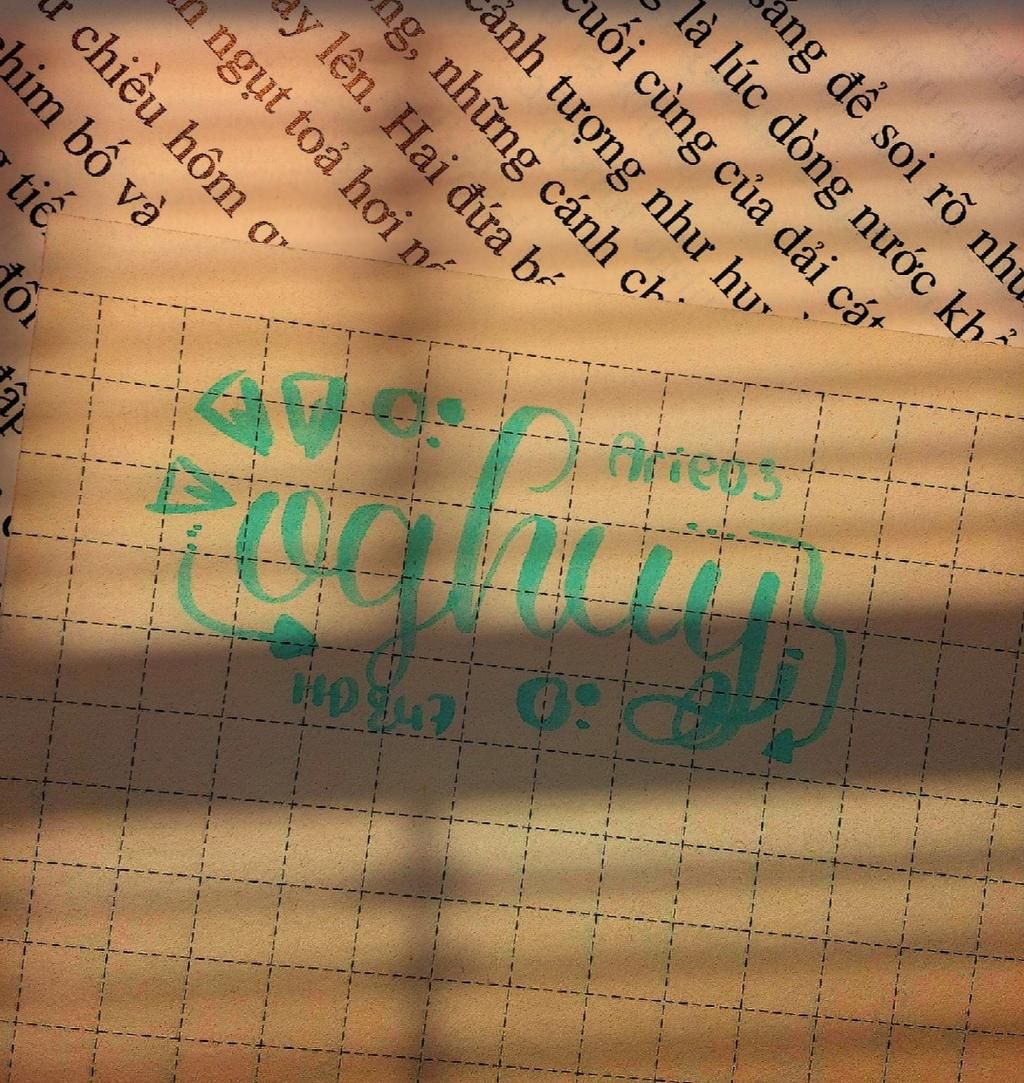 sáng để soi rõ như
là lúc dòng nước khổ
cuối cùng của dải cát
cảnh tượng như huy
những cánh ch
ay lên. Hai đứa bé
ngụt toả hơi nó
chiều hôm qu
chim bố và
tiế
đôi
đập
Arieo3
oghuy
HD 8u47